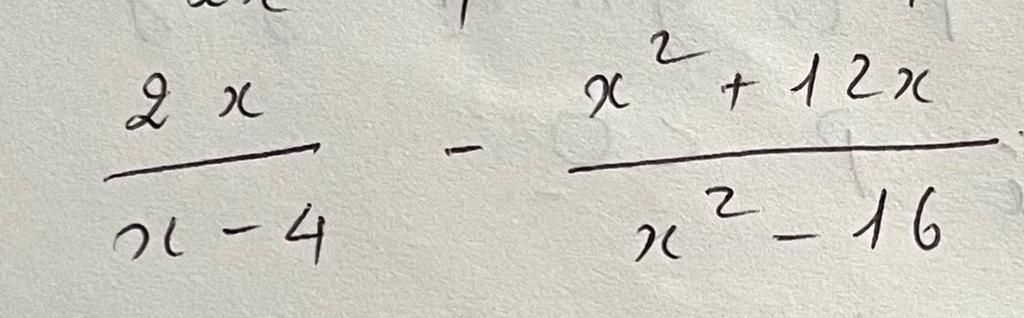 2x/(x-4) - (x²+12x)/(x²-16)